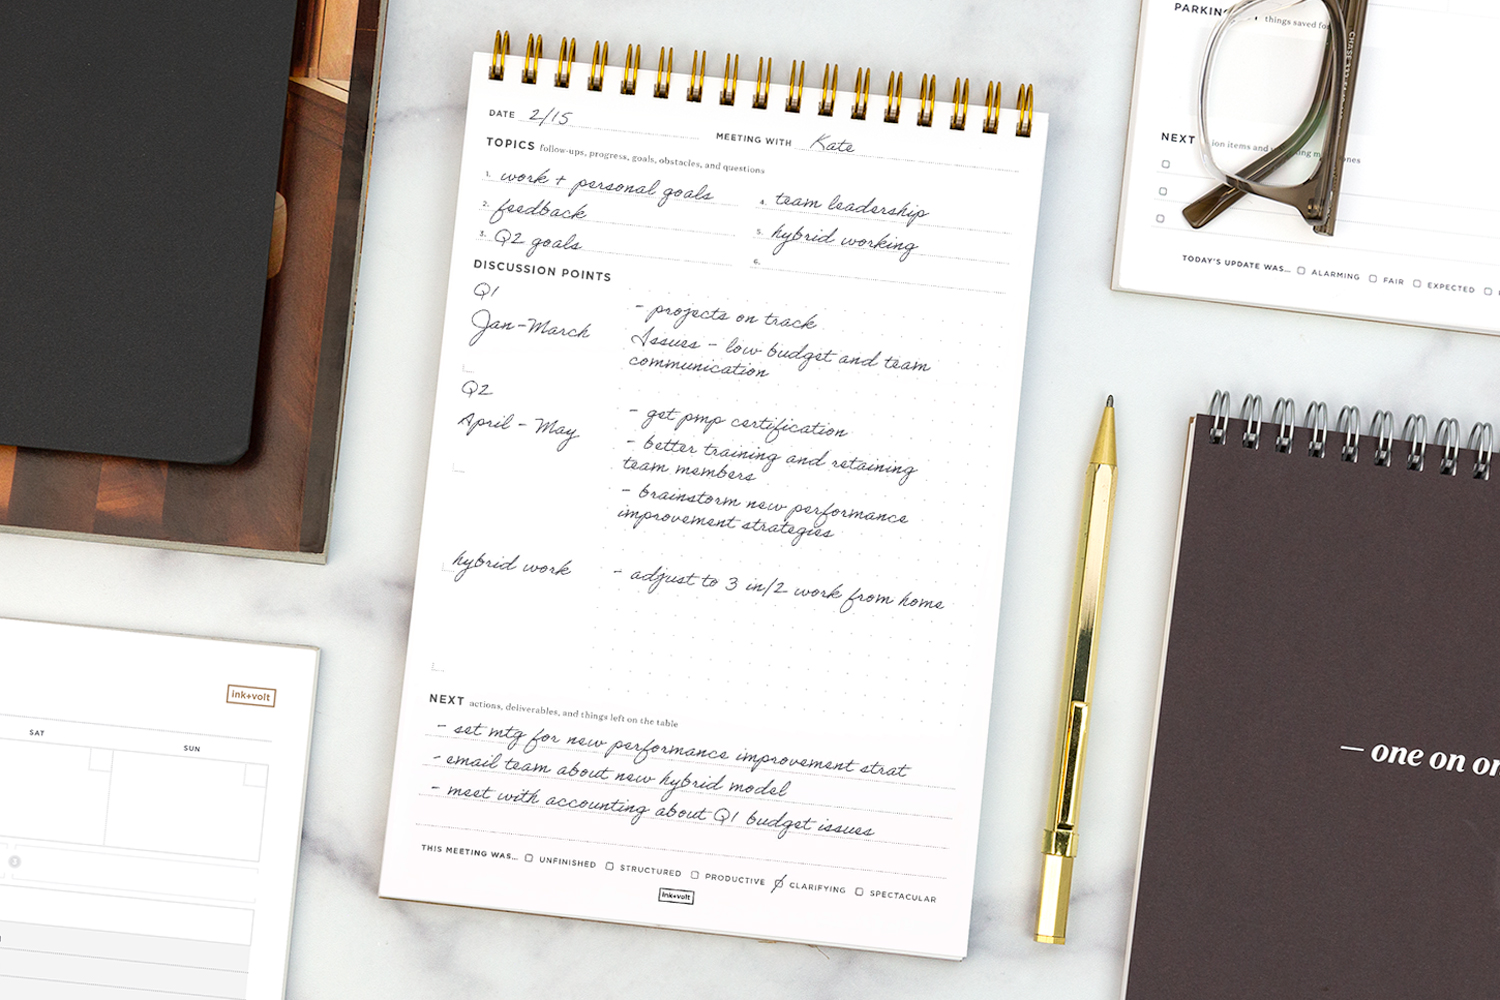 DATE 2/15 MEETING WITH Kate
TOPICS follow-ups, progress, goals, obstacles, and questions
1. work + personal goals
2. feedback
3. Q2 goals
4. team leadership
5. hybrid working
6.
DISCUSSION POINTS
Q1
Jan-March
- projects on track
Issues - low budget and team
communication
Q2
April - May
- get pmp certification
- better training and retaining
team members
- brainstorm new performance
improvement strategies
hybrid work
- adjust to 3 in/2 work from home
NEXT actions, deliverables, and things left on the table
- set mtg for new performance improvement strat
- email team about new hybrid model
- meet with accounting about Q1 budget issues
THIS MEETING WAS... UNFINISHED STRUCTURED PRODUCTIVE CLARIFYING SPECTACULAR
ink+volt
things saved for
NEXT
TODAY'S UPDATE WAS... ALARMING FAIR EXPECTED
— one on
ink+volt
SAT SUN